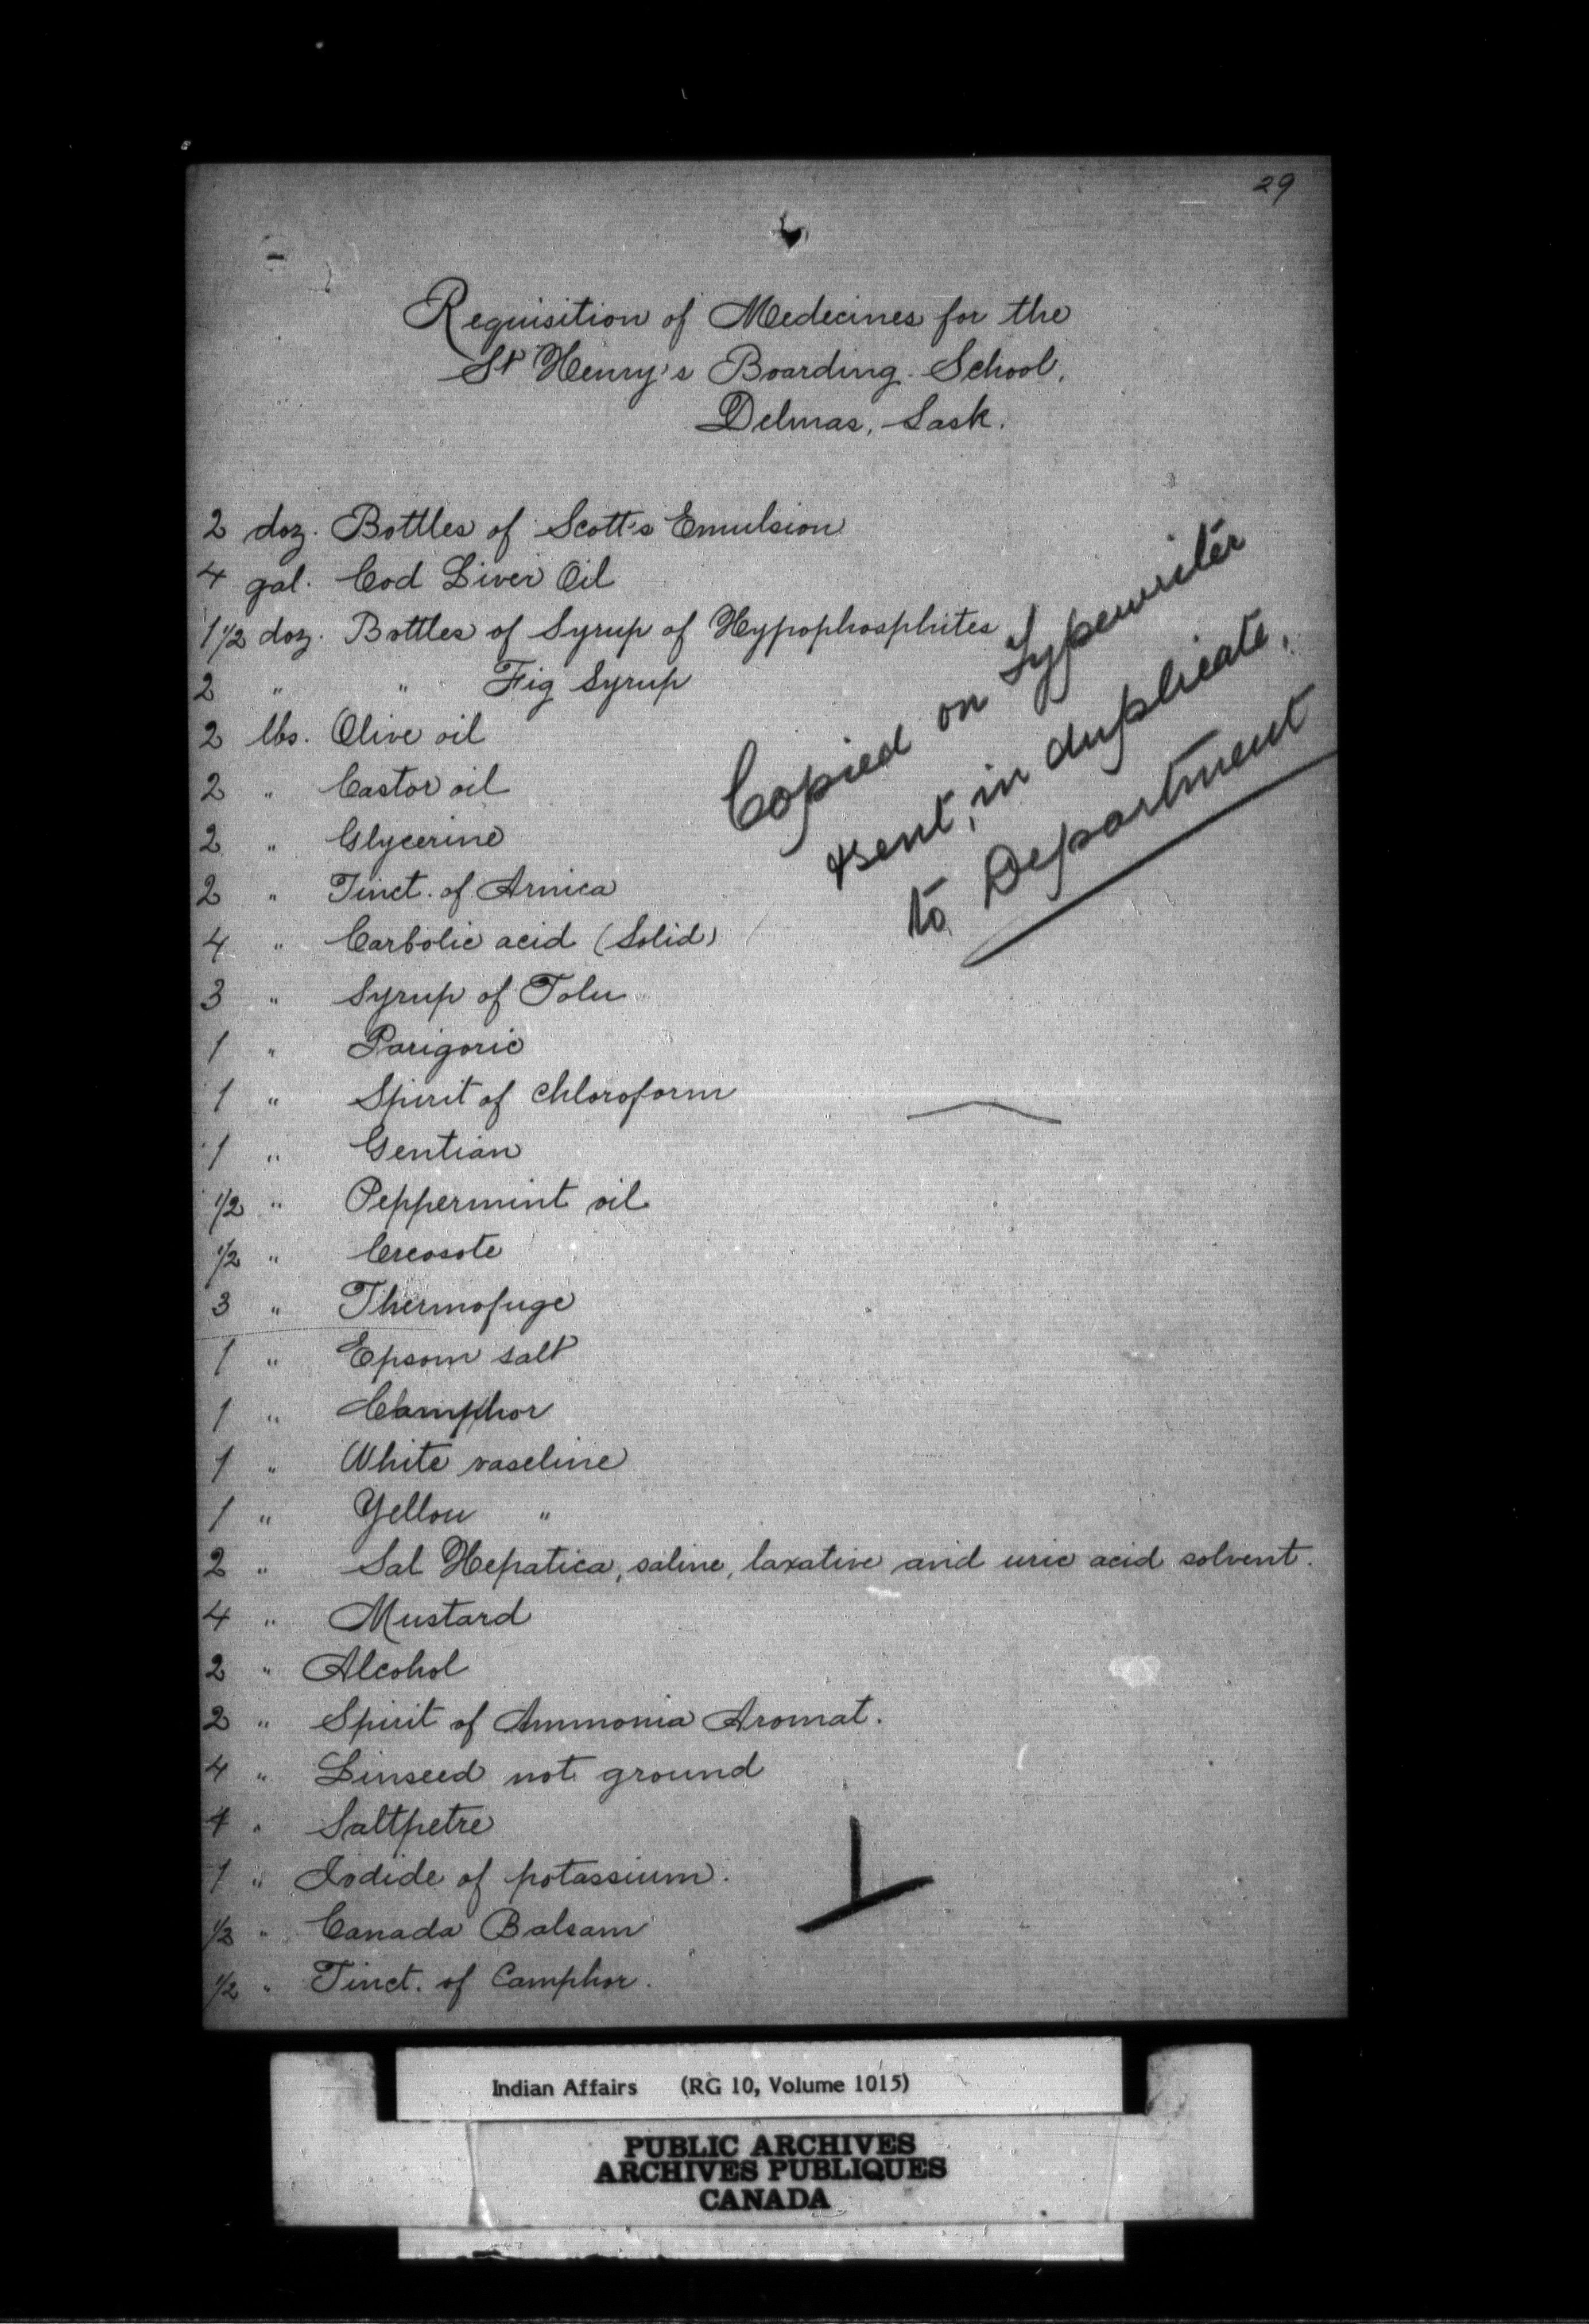 29
Requisition of Medecines for the
St Henry's Boarding School,
Delmas, Sask.
2 doz. Bottles of Scott's Emulsion
4 gal. Cod Liver Oil
1 1/2 doz. Bottles of Syrup of Hypophosphites
2 " " Fig Syrup
2 lbs. Olive oil
2 " Castor oil
2 " Glycerine
2 " Tinct. of Arnica
4 " Carbolic acid (Solid)
3 " Syrup of Tolu
1 " Parigoric
1 " Spirit of Chloroform
1 " Gentian
1/2 " Peppermint oil
1/2 " Creosote
3 " Thermofuge
1 " Epsom salt
1 " Camphor
1 " White vaseline
1 " Yellow "
2 " Sal Hepatica, saline, laxative and uric acid solvent.
4 " Mustard
2 " Alcohol
2 " Spirit of Ammonia Aromat.
4 " Linseed not ground
4 " Saltpetre
1 " Iodide of potassium.
1/2 " Canada Balsam
1/2 " Tinct. of Camphor.
Copied on Typewriter
& sent, in duplicate,
to Department
Indian Affairs (RG 10, Volume 1015)
PUBLIC ARCHIVES
ARCHIVES PUBLIQUES
CANADA